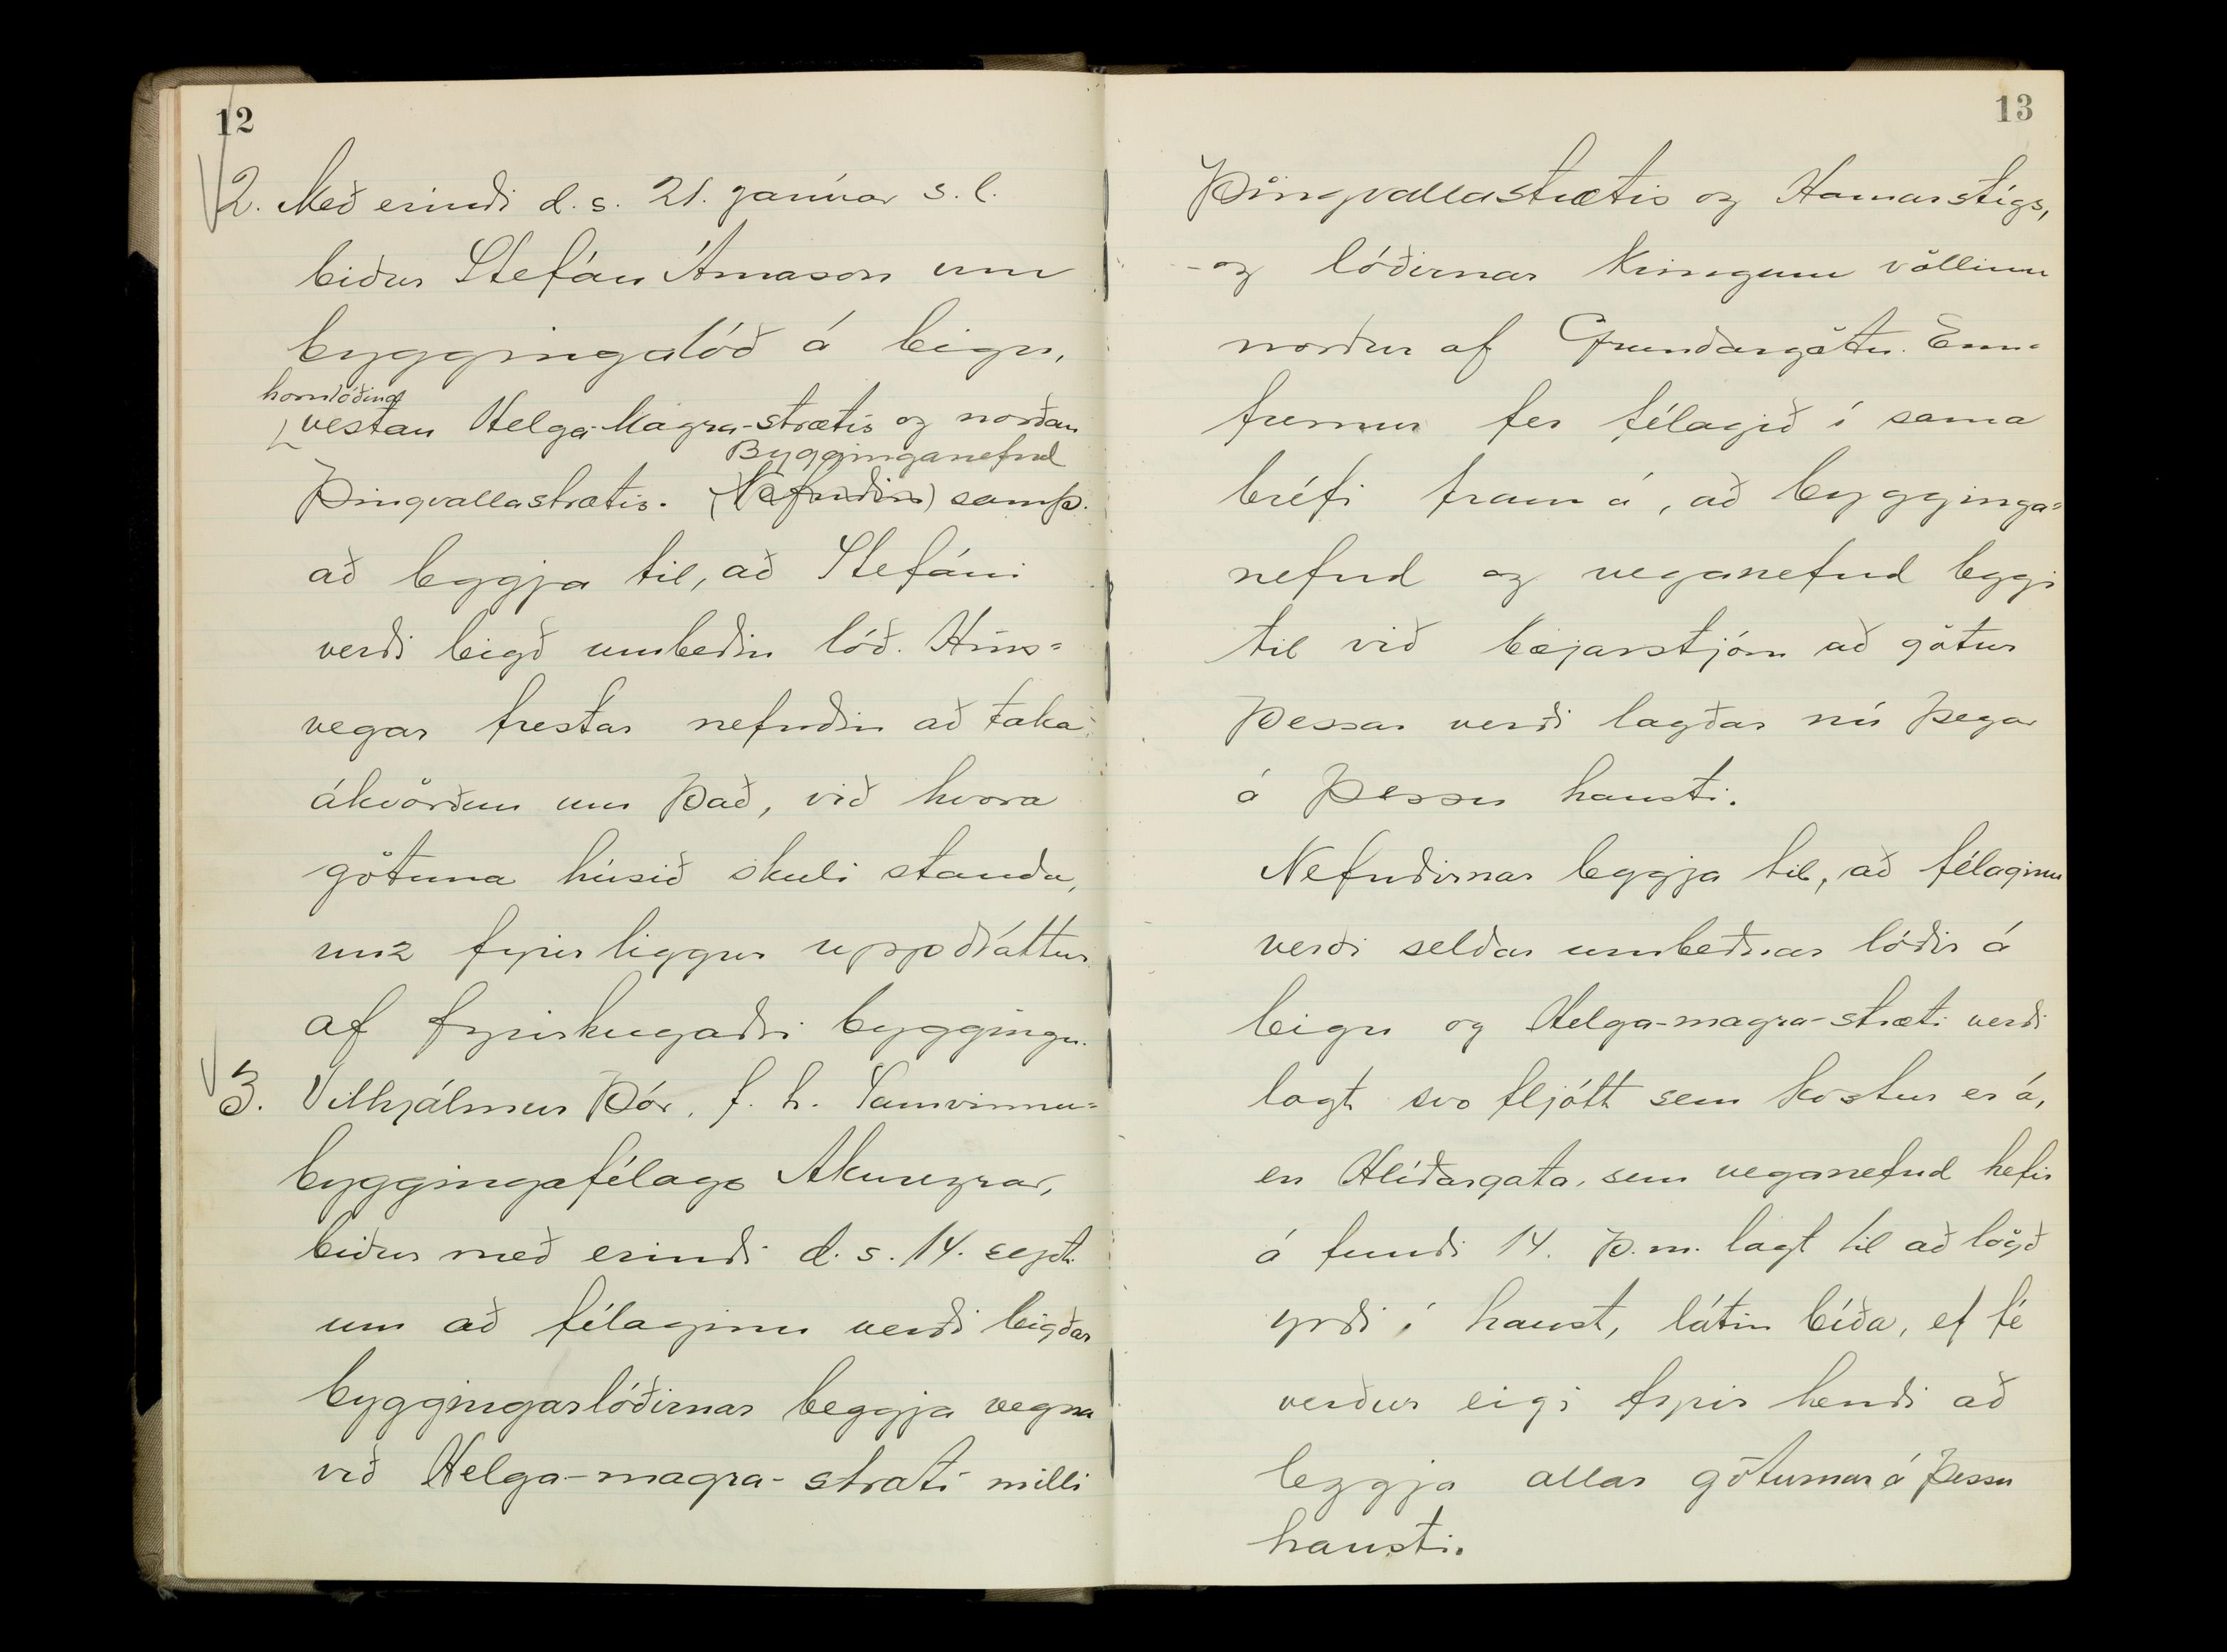 12
2. Með erindi d.s. 21. janúar s.l.
biður Stefán Árnason um
byggingalóð á leigu,
hornlóðina
vestan Helga-Magra-strætis og norðan
Bygginganefnd
Þingvallastrætis. (Nefndin) samþ.
að leggja til, að Stefáni
verði leigð umbeðin lóð. Hins-
vegar frestar nefndin að taka
ákvörðun um það, við hvora
götuna húsið skuli standa,
unz fyrir liggur uppdráttur
af fyrirhugaðri byggingu.
3. Vilhjálmur Þór, f. h. Samvinnu-
byggingafélags Akureyrar,
biður með erindi d.s. 14. sept.
um að félaginu verði leigðar
byggingarlóðirnar beggja vegna
við Helga-magra-stræti milli
13
Þingvallastrætis og Hamarstígs,
og lóðirnar kringum völlinn
norður af Grundargötu. Enn-
fremur fer félagið í sama
bréfi fram á, að bygginga-
nefnd og veganefnd leggi
til við bæjarstjórn að götur
þessar verði lagðar nú þegar
á þessu hausti.
Nefndirnar leggja til, að félaginu
verði seldar umbeðnar lóðir á
leigu og Helga-magra-stræti verði
lagt svo fljótt sem kostur er á,
en Hlíðargata, sem veganefnd hefir
á fundi 14. þ.m. lagt til að lögð
yrði í haust, látin bíða, ef fé
verður eigi fyrir hendi að
leggja allar göturnar á þessu
hausti.